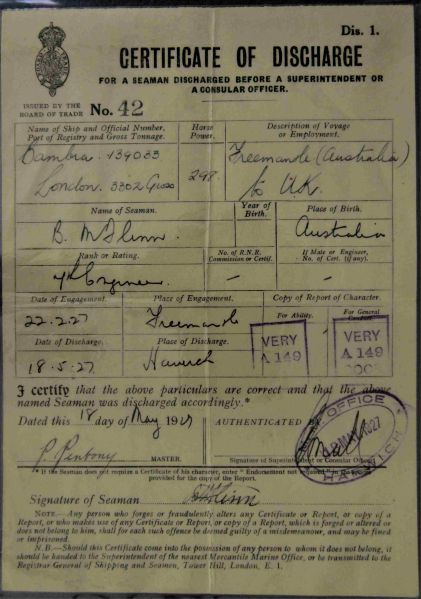 Dis. 1.
CERTIFICATE OF DISCHARGE
FOR A SEAMAN DISCHARGED BEFORE A SUPERINTENDENT OR
A CONSULAR OFFICER.
ISSUED BY THE
BOARD OF TRADE
No. 42
Name of Ship and Official Number,
Port of Registry and Gross Tonnage.
Horse
Power.
Description of Voyage
or Employment.
Cambra. 134033
London. 3302 Gross
298
Freemantle (Australia)
to U.K.
Name of Seaman.
Year of
Birth.
Place of Birth.
B. McGlinn.
Australia
Rank or Rating.
No. of R.N.R.
Commission or Certif.
If Mate or Engineer,
No. of Cert. (if any).
4th Engineer
-
-
Date of Engagement.
Place of Engagement.
Copy of Report of Character.
22.2.27
Freemantle
For Ability.
For General
Conduct.
Date of Discharge.
Place of Discharge.
VERY
A 149
VERY
A 149
18.5.27
Harwich
I certify that the above particulars are correct and that the above
named Seaman was discharged accordingly.*
Dated this 18 day of May 1927
AUTHENTICATED BY
P. Penbony
MASTER.
Signature of Superintendent or Consular Officer
OFFICE
MAY 1927
HARWICH
* If the Seaman does not require a Certificate of his character, enter "Endorsement not required" in the
provided for the copy of the Report.
Signature of Seaman
NOTE.—Any person who forges or fraudulently alters any Certificate or Report, or copy of a
Report, or who makes use of any Certificate or Report, or copy of a Report, which is forged or altered or
does not belong to him, shall for each such offence be deemed guilty of a misdemeanour, and may be fined
or imprisoned.
N.B.—Should this Certificate come into the possession of any person to whom it does not belong, it
should be handed to the Superintendent of the nearest Mercantile Marine Office, or be transmitted to the
Registrar-General of Shipping and Seamen, Tower Hill, London, E. 1.